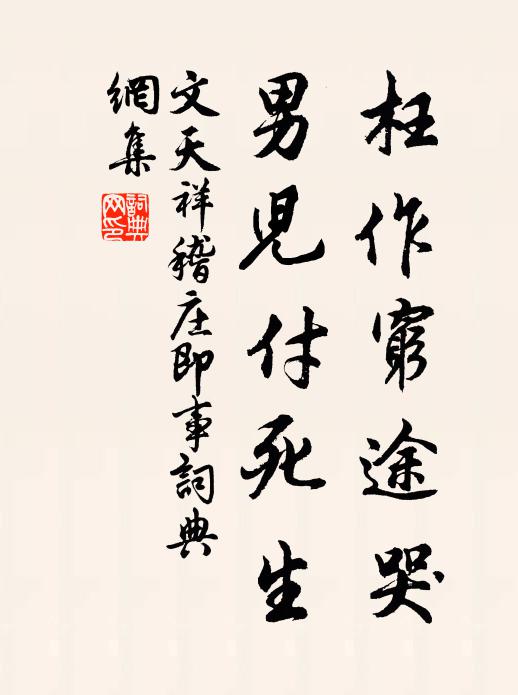 枉作窮途哭
男兒付死生
文天祥稽庄即事詞典
網集
詞典
网印